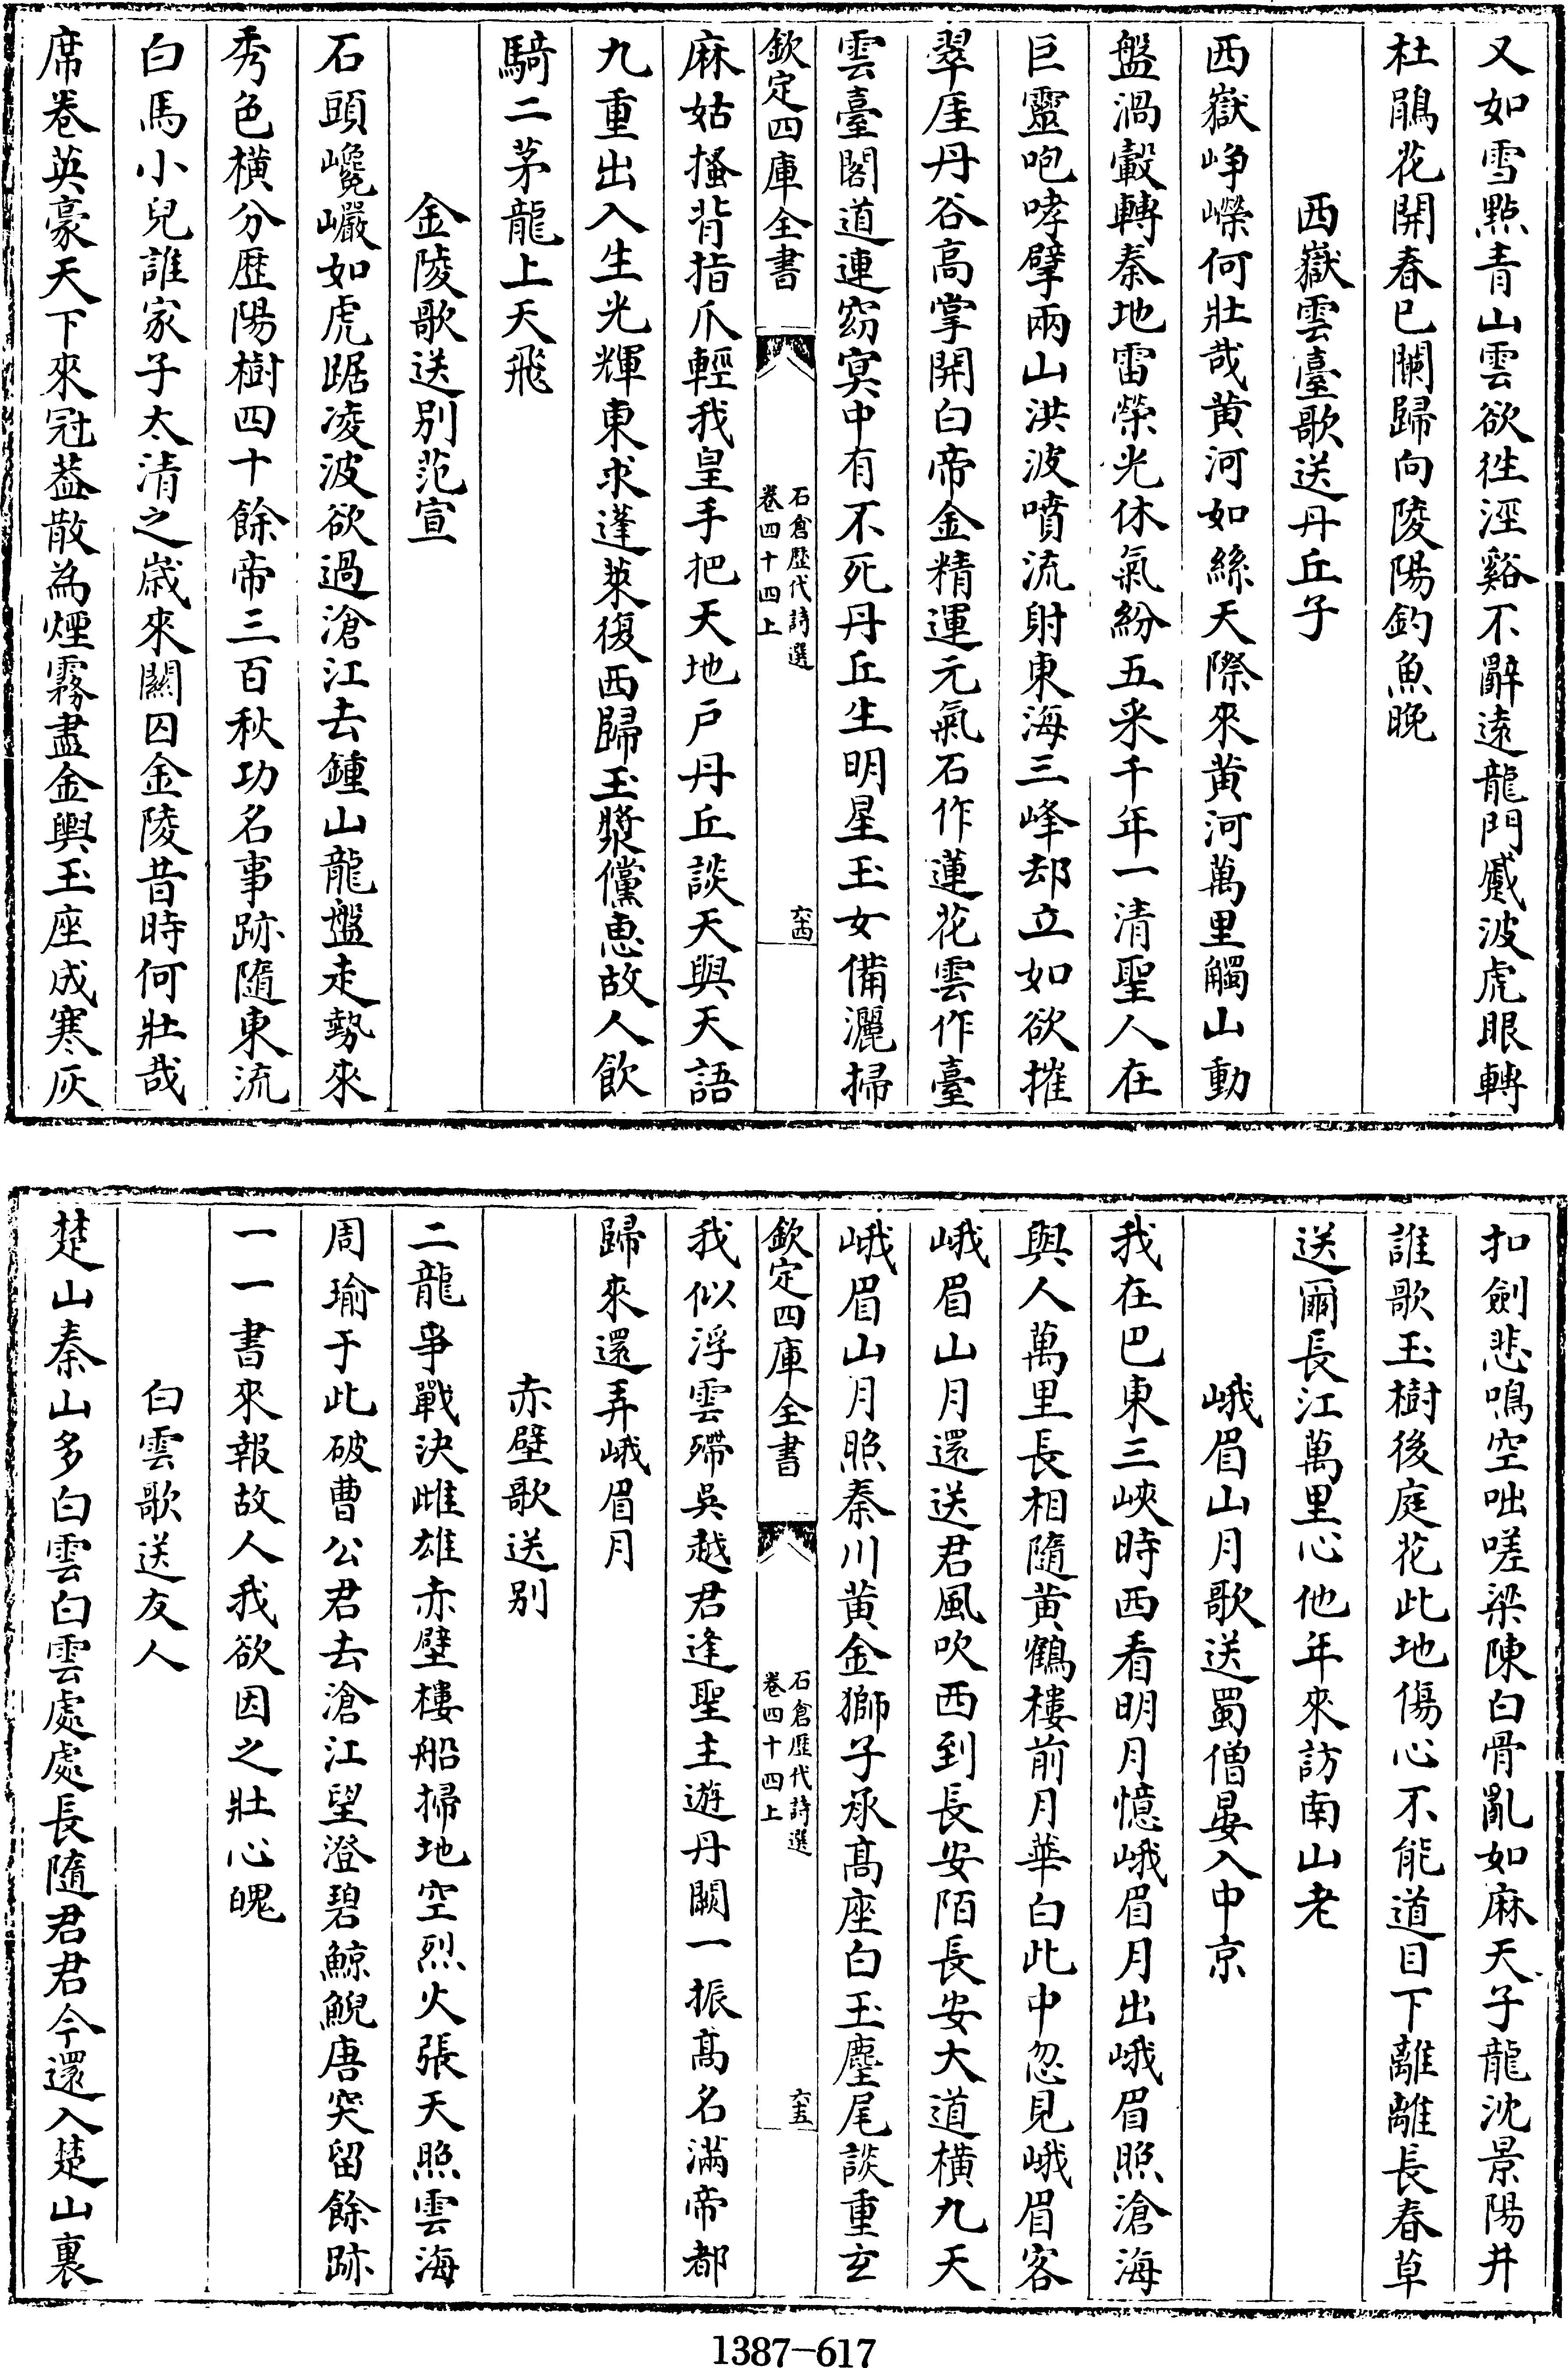 又如雪點青山雲欲徃涇谿不辭遠龍門蹙波虎眼轉
杜鵑花開春已闌歸向陵陽釣魚晚
西嶽雲臺歌送丹丘子
西嶽崢嶸何壯哉黄河如絲天際來黄河萬里觸山動
盤渦轂轉秦地雷榮光休氣紛五采千年一清聖人在
巨靈咆哮擘兩山洪波噴流射東海三峰却立如欲摧
翠厓丹谷高掌開白帝金精運元氣石作蓮花雲作臺
雲臺閣道連窈冥中有不死丹丘生明星玉女備灑掃
欽定四庫全書
石倉歴代詩選
卷四十四上
六四
麻姑搔背指爪輕我皇手把天地户丹丘談天與天語
九重出入生光輝東求蓬萊復西歸玉漿儻惠故人飲
騎二茅龍上天飛
金陵歌送别范宣
石頭巉巗如虎踞凌波欲過滄江去鍾山龍盤走勢來
秀色橫分歴陽樹四十餘帝三百秋功名事跡隨東流
白馬小兒誰家子太清之嵗來關囚金陵昔時何壯哉
席卷英豪天下來冠葢散為煙霧盡金輿玉座成寒灰
扣劍悲鳴空咄嗟梁陳白骨亂如麻天子龍沈景陽井
誰歌玉樹後庭花此地傷心不能道目下離離長春草
送爾長江萬里心他年來訪南山老
峨眉山月歌送蜀僧晏入中京
我在巴東三峽時西看明月憶峨眉月出峨眉照滄海
與人萬里長相隨黄鶴樓前月華白此中忽見峨眉客
峨眉山月還送君風吹西到長安陌長安大道橫九天
峨眉山月照秦川黄金獅子承髙座白玉塵尾談重玄
欽定四庫全書
石倉歴代詩選
卷四十四上
六五
我似浮雲殢吳越君逢聖主遊丹闕一振髙名滿帝都
歸來還弄峨眉月
赤壁歌送别
二龍爭戰決雌雄赤壁樓船掃地空烈火張天照雲海
周瑜于此破曹公君去滄江望澄碧鯨鯢唐突留餘跡
一一書來報故人我欲因之壯心魄
白雲歌送友人
楚山秦山多白雲白雲處處長隨君君今還入楚山裏
1387-617